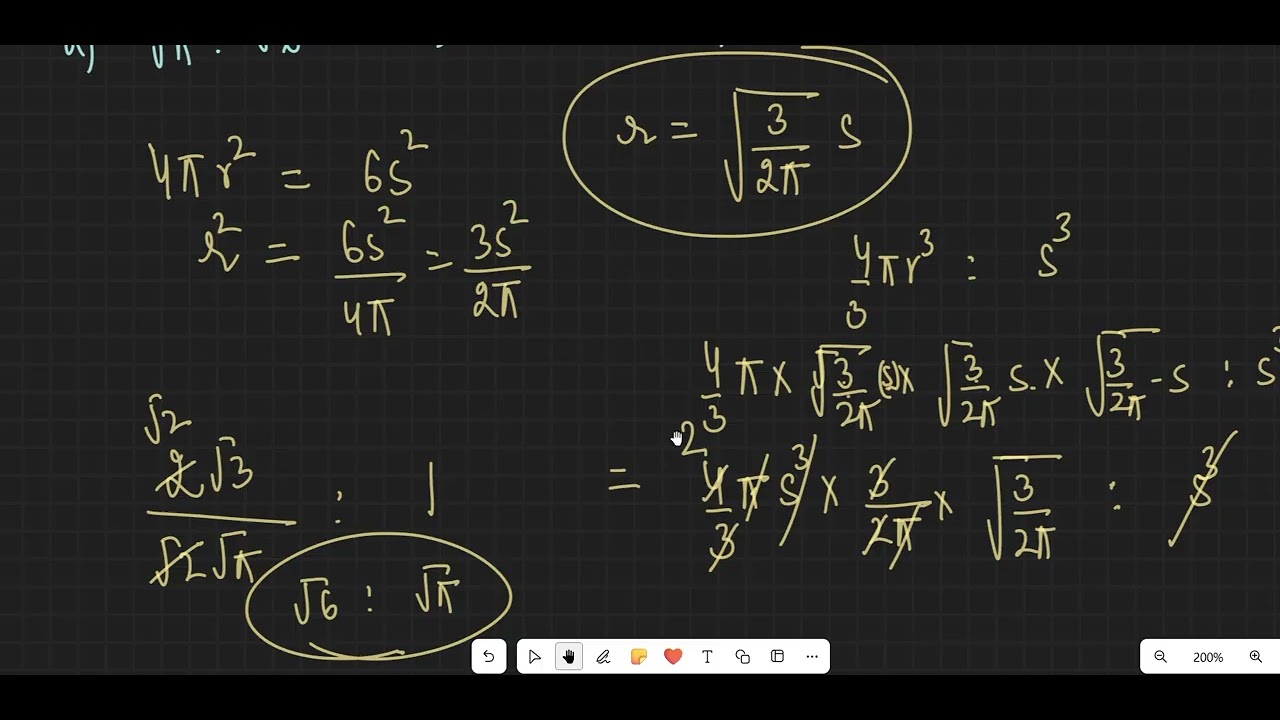 a) √π : √2
r = √(3/2π) s
4πr² = 6s²
r² = 6s²/4π = 3s²/2π
4/3 πr³ : s³
4/3 π × √(3/2π) (s) × √(3/2π) s. × √(3/2π) - s : s³
= 2 4/3 π s³ × 3/2π × √(3/2π) : s³
√2
2√3/√2√π : 1
√6 : √π
T
200%